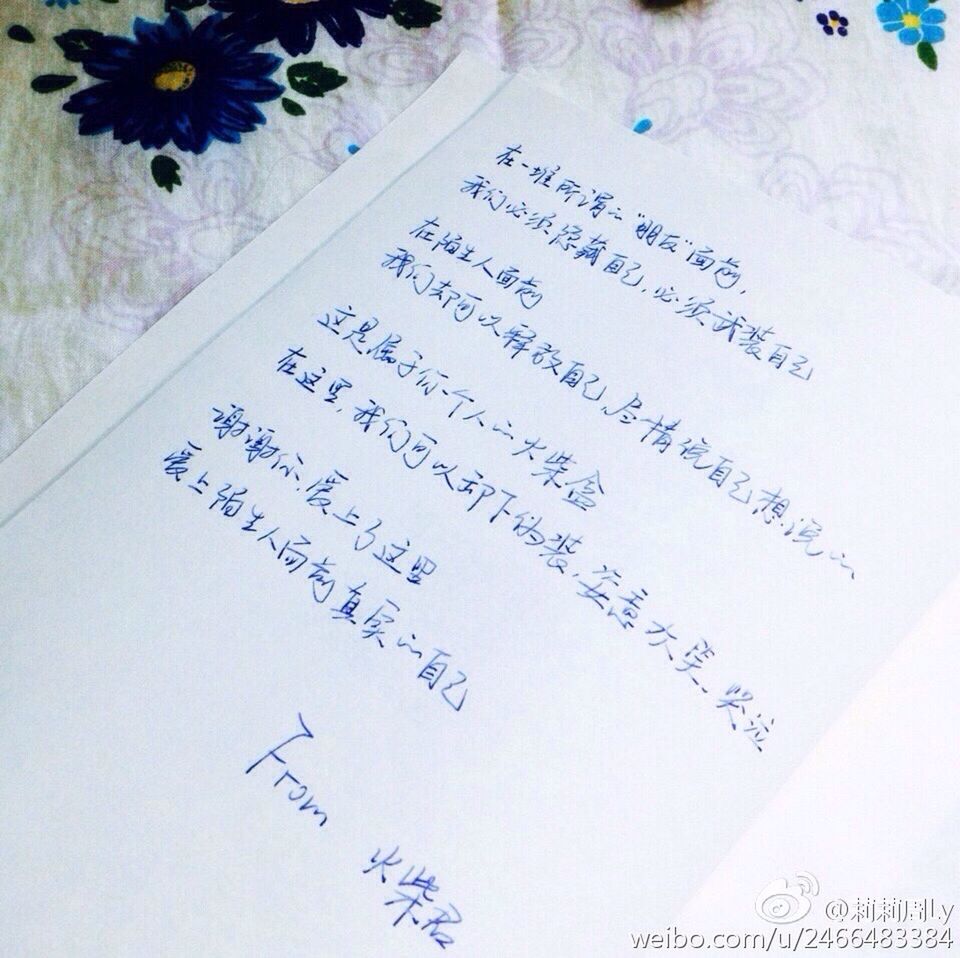 在一堆所谓的“朋友”面前，
我们必须隐藏自己，必须武装自己
在陌生人面前
我们却可以释放自己，尽情说自己想说的
这是属于你一个人的火柴盒
在这里，我们可以卸下伪装，姿意大笑、哭泣
谢谢你，爱上了这里
爱上陌生人面前真实的自己
From
火柴君
@莉莉周Ly
weibo.com/u/2466483384